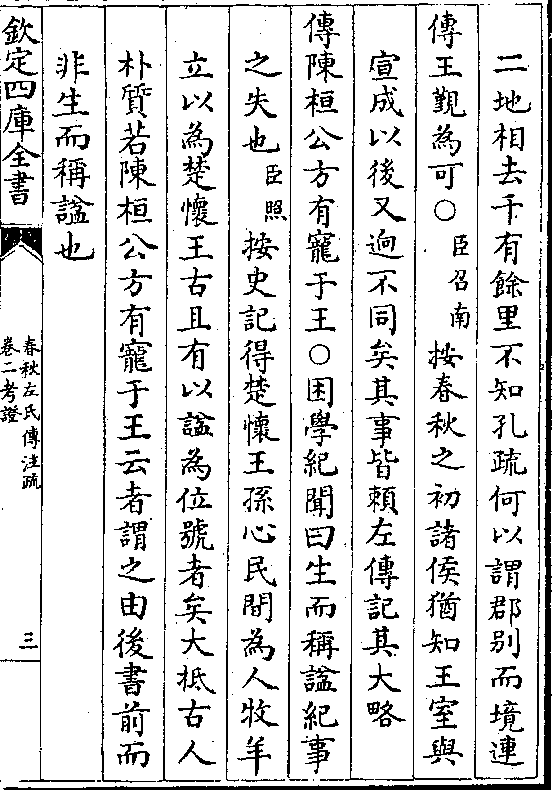 二地相去千有餘里不知孔疏何以謂郡別而境連
傳王覲為可○臣召南按春秋之初諸侯猶知王室與
宣成以後又逈不同矣其事皆賴左傳記其大略
傳陳桓公方有寵于王○困學紀聞曰生而稱諡紀事
之失也臣照按史記得楚懷王孫心民間為人牧羊
立以為楚懷王古且有以諡為位號者矣大抵古人
朴質若陳桓公方有寵于王云者謂之由後書前而
非生而稱諡也
欽定四庫全書
春秋左氏傳注疏
卷二考證
三